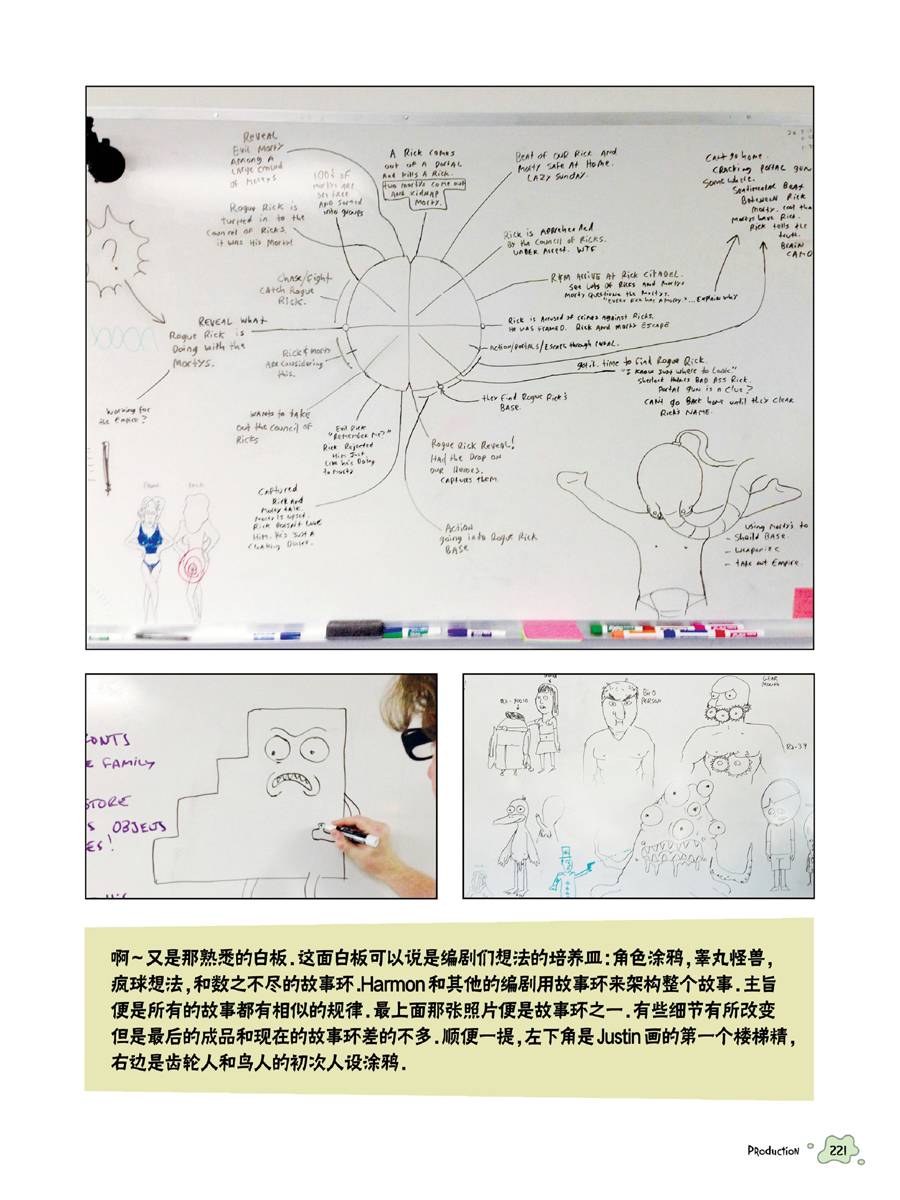 REVEAL
Evil Morty
Among A
Large crowd
of Mortys
100% of
Mortys are
set free
And sorted
into groups
A Rick comes
out of a portal
And kills A Rick.
two mortys come out
And kidnap
Morty.
Beat of our Rick And
Morty Safe At Home.
Lazy Sunday.
Can't go home.
Cracking portal gun
Some where.
Sentimental Beat
Between Rick
Morty.
Mortys have Rick.
Rick tells the
truth.
BRAIN
CAMO
Rogue Rick is
turned in to the
Council of Ricks.
it was His Morty!
?
Rick is Apprehended
By the Council of Ricks.
UNDER Arrest. WTF
Chase/Fight
Catch Rogue
Rick.
R&M ARRIVE AT Rick CITADEL.
See Lots of Ricks And Mortys
Morty questions the Mortys.
"Every Rick has A Morty"...Explain why
REVEAL WHAT
Rogue Rick is
Doing with the
Mortys.
Rick is Accused of crimes against Ricks.
He was framed. Rick And Morty ESCAPE
Action/Portals/Escape through portal.
Rick & Morty
Are considering
this.
got it. time to find Rogue Rick.
"I know Just where to Look"
Sherlock Holmes BAD ASS Rick.
Portal gun is A Clue?
CAN't go Back home until they clear
Rick's NAME.
they find Rogue Rick's
BASE.
Working for
the Empire?
Wants to take
out the council of
Ricks
Evil Rick
"Remember Me?"
Rick Rejected
Him Just
Like he's Doing
to Morty
Rogue Rick Reveal!
Had the Drop on
our Heroes.
Captures them.
Captured
Rick And
Morty talk.
Morty is upset.
Rick Doesn't Love
Him. He's Just a
Cloaking Device.
Action
going into Rogue Rick
BASE
Front
Back
Using Morty's to
- Sheild BASE.
- weaponize
- take out Empire.
FONTS
FAMILY
STORE
OBJETS
ES!
BIRD
PERSON
GEAR
MOUTH
啊~又是那熟悉的白板.这面白板可以说是编剧们想法的培养皿:角色涂鸦,睾丸怪兽,
疯球想法,和数之不尽的故事环.Harmon 和其他的编剧用故事环来架构整个故事.主旨
便是所有的故事都有相似的规律.最上面那张照片便是故事环之一.有些细节有所改变
但是最后的成品和现在的故事环差的不多.顺便一提,左下角是 Justin 画的第一个楼梯精,
右边是齿轮人和鸟人的初次人设涂鸦.
PRODUCTION
221